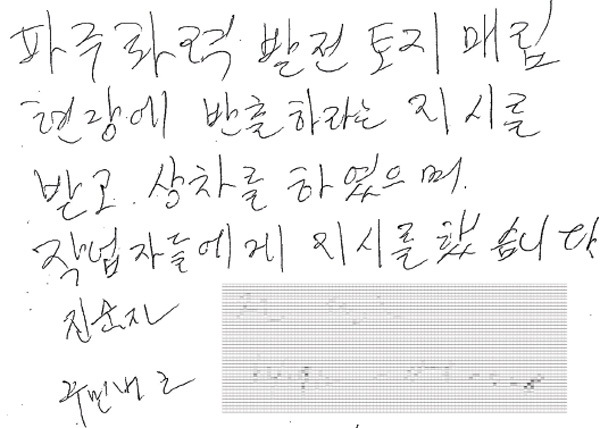 파주화력 발전 토지 매립
현장에 반출하라는 지시를
받고 상차를 하였으며.
작업자들에게 지시를 했습니다
진술자
주민번호